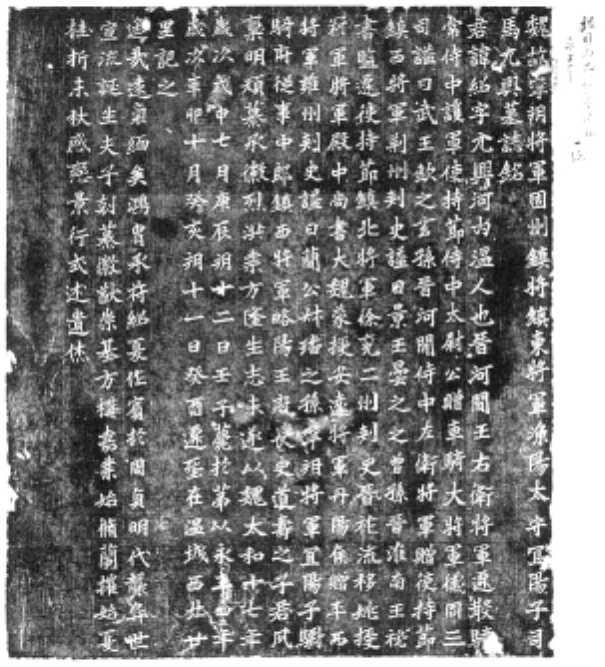 魏故寧朔將軍固州鎮將鎮東將軍漁陽太守宜陽子司
馬元興墓誌銘
君諱紹字元興河內溫人也晉河間王右衛將軍遷散騎
常侍中護軍使持節侍中太尉公贈車騎大將軍儀同三
司謚曰武王欽之玄孫晉河間侍中左衛將軍贈使持節
鎮西將軍荊州刺史謚曰景王曇之之曾孫晉淮南王秘
書監遷使持節鎮北將軍徐兗二州刺史晉祚流移姚授
冠軍將軍殿中尚書大魏蒙授安遠將軍丹陽侯贈平西
將軍雍州刺史謚曰簡公叔璠之孫寧朔將軍宜陽子驃
騎府從事中郎鎮西將軍略陽王府長史道壽之子君夙
稟明穎纂承徽烈洪業方隆生志未遂以魏太和十七年
歲次戊申七月庚辰朔十二日壬子薨於第以永平四年
歲次辛卯十月癸亥朔十一日癸酉遷塋在溫城西北廿
里記之
遙哉遠裔緬矣鴻胄承符紹夏作賓於周貞明代襲弈世
宣流誕生夫子剋纂徽猷崇基方構嘉業始脩蘭摧始夏
桂折未秋感戀景行式述遺休